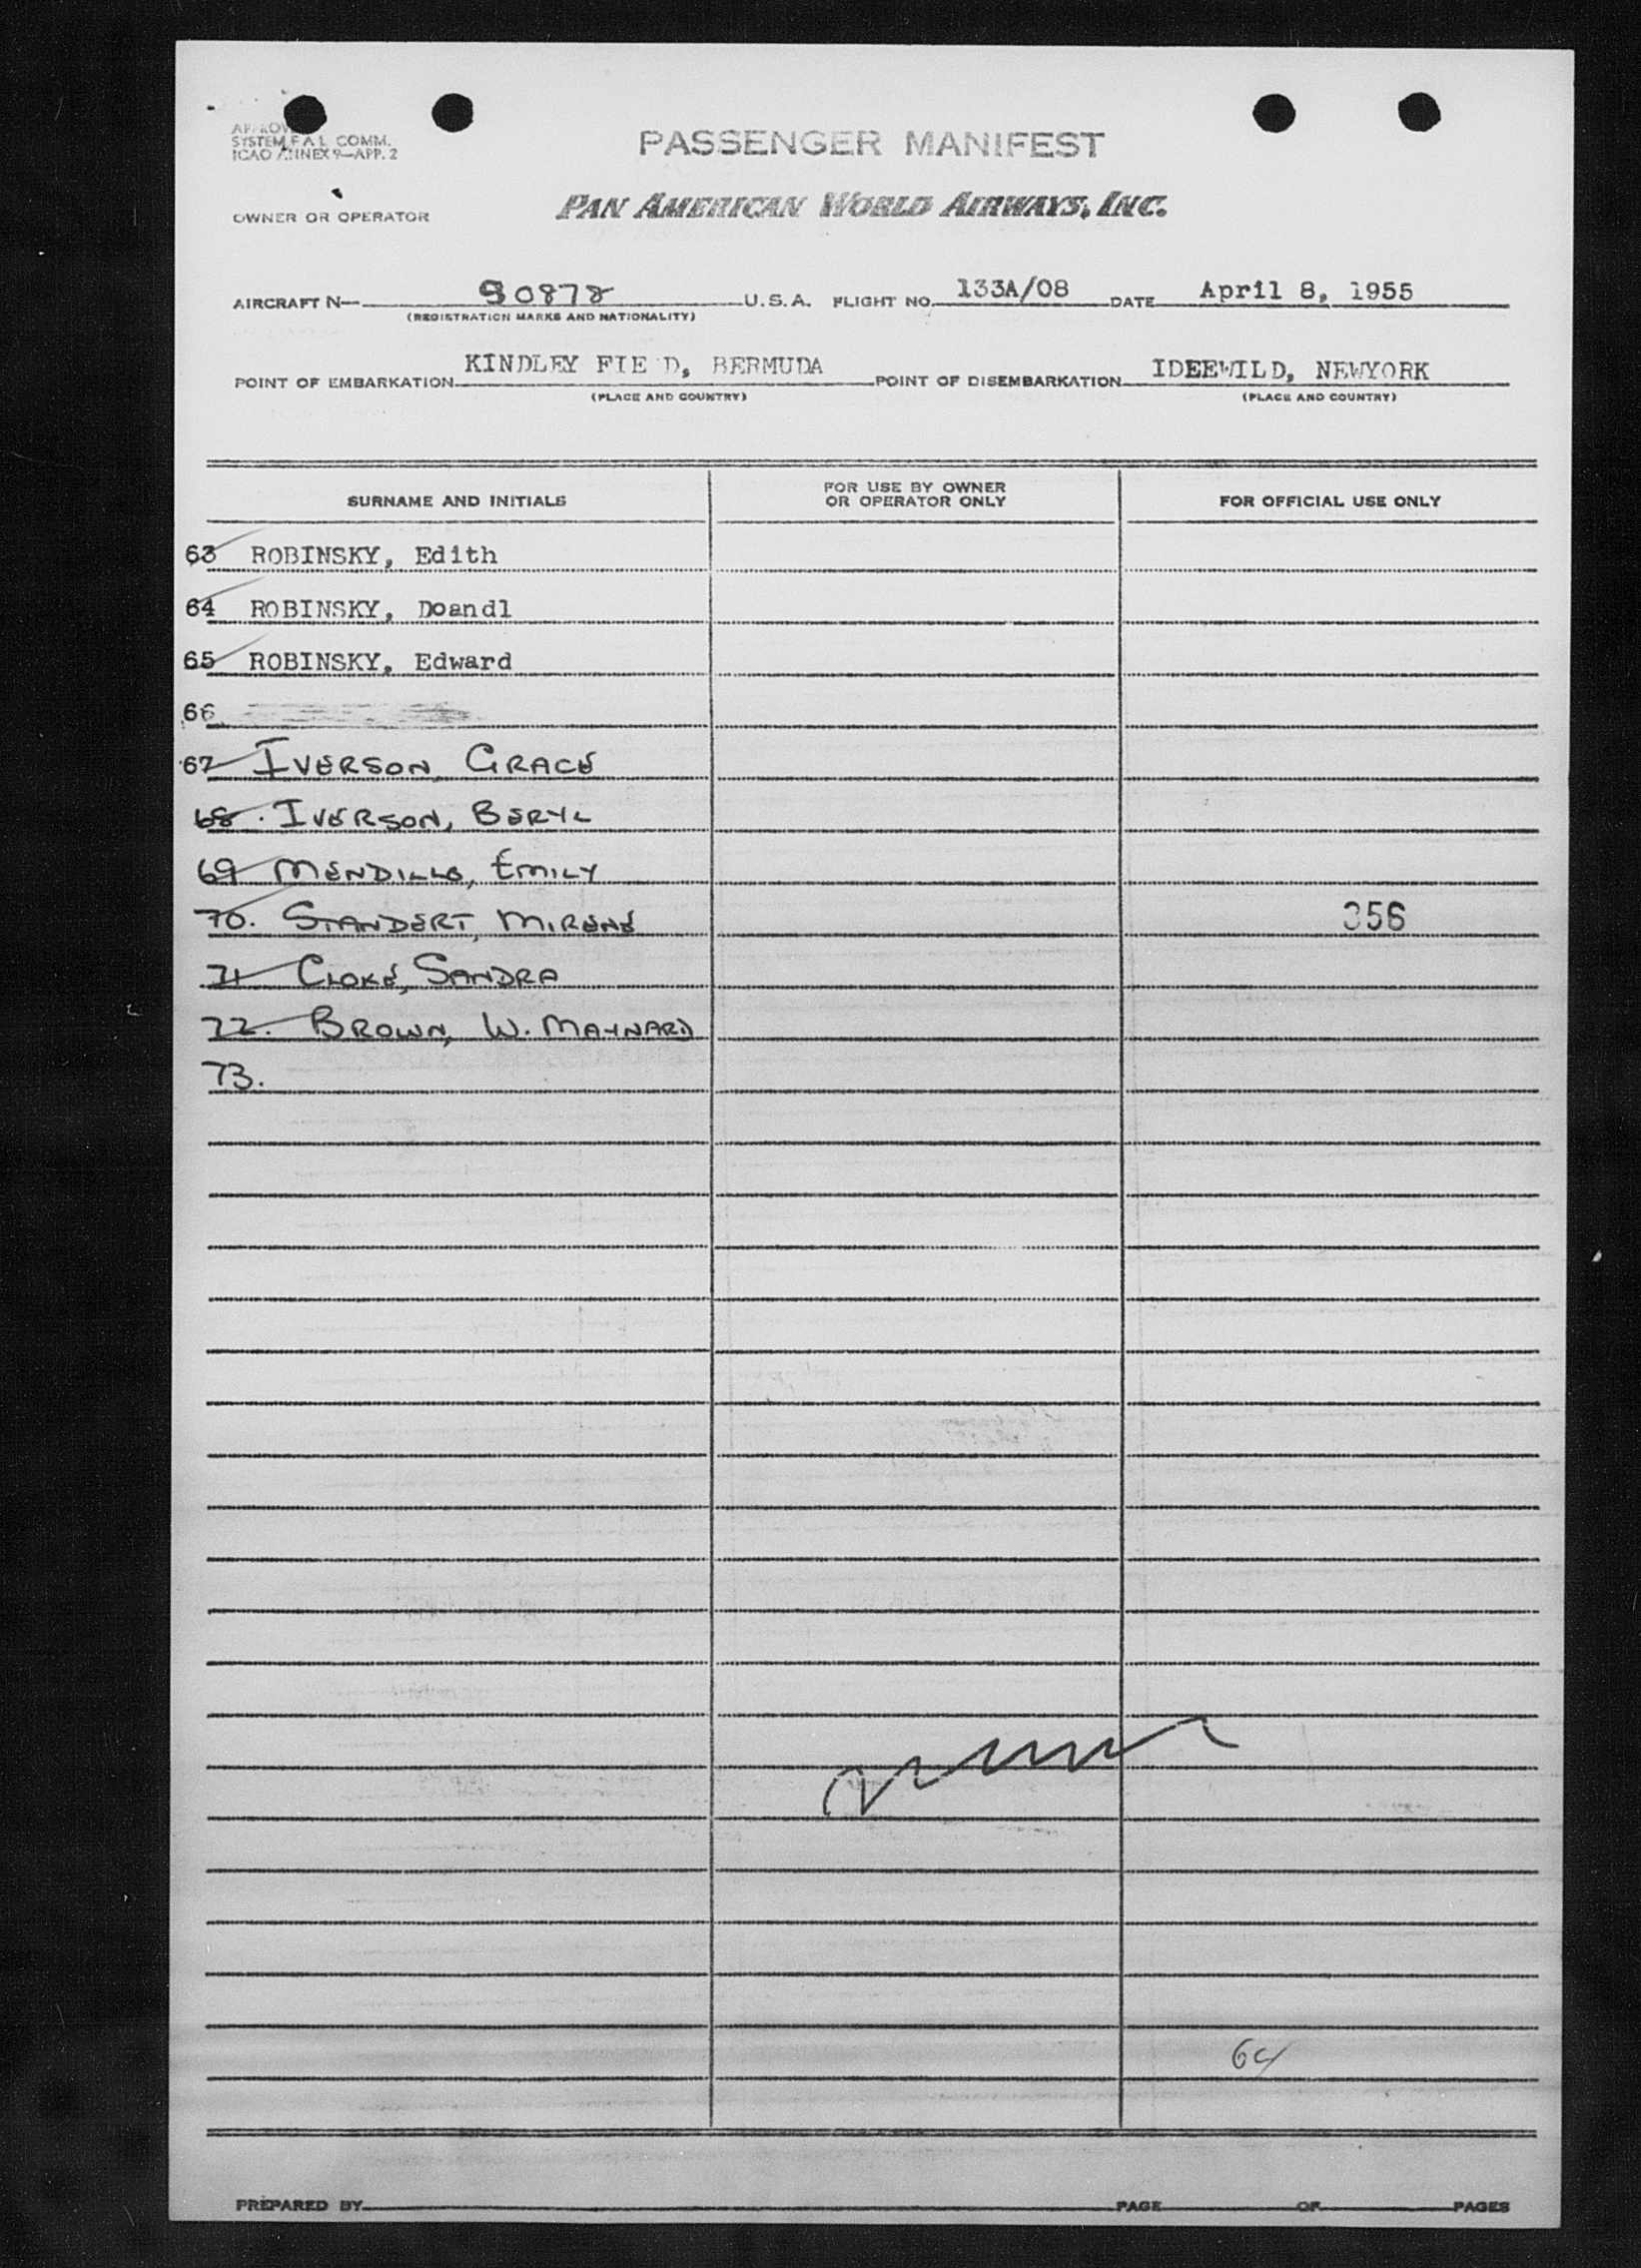 SYSTEM F A L COMM.
ICAO ANNEX 9—APP. 2
PASSENGER MANIFEST
OWNER OR OPERATOR
PAN AMERICAN WORLD AIRWAYS, INC.
AIRCRAFT N— 90878 U.S.A. FLIGHT NO. 133A/08 DATE April 8, 1955
(REGISTRATION MARKS AND NATIONALITY)
POINT OF EMBARKATION KINDLEY FIE D, BERMUDA POINT OF DISEMBARKATION IDEEWILD, NEWYORK
(PLACE AND COUNTRY) (PLACE AND COUNTRY)
SURNAME AND INITIALS
FOR USE BY OWNER
OR OPERATOR ONLY
FOR OFFICIAL USE ONLY
63 ROBINSKY, Edith
64 ROBINSKY, Doandl
65 ROBINSKY, Edward
66
67 IVERSON, GRACE
68. IVERSON, BERYL
69 MENDILLO, EMILY
70. STANDERT, MIRENE 356
71 CLOKE, SANDRA
72. BROWN, W. MAYNARD
73.
PREPARED BY PAGE OF PAGES